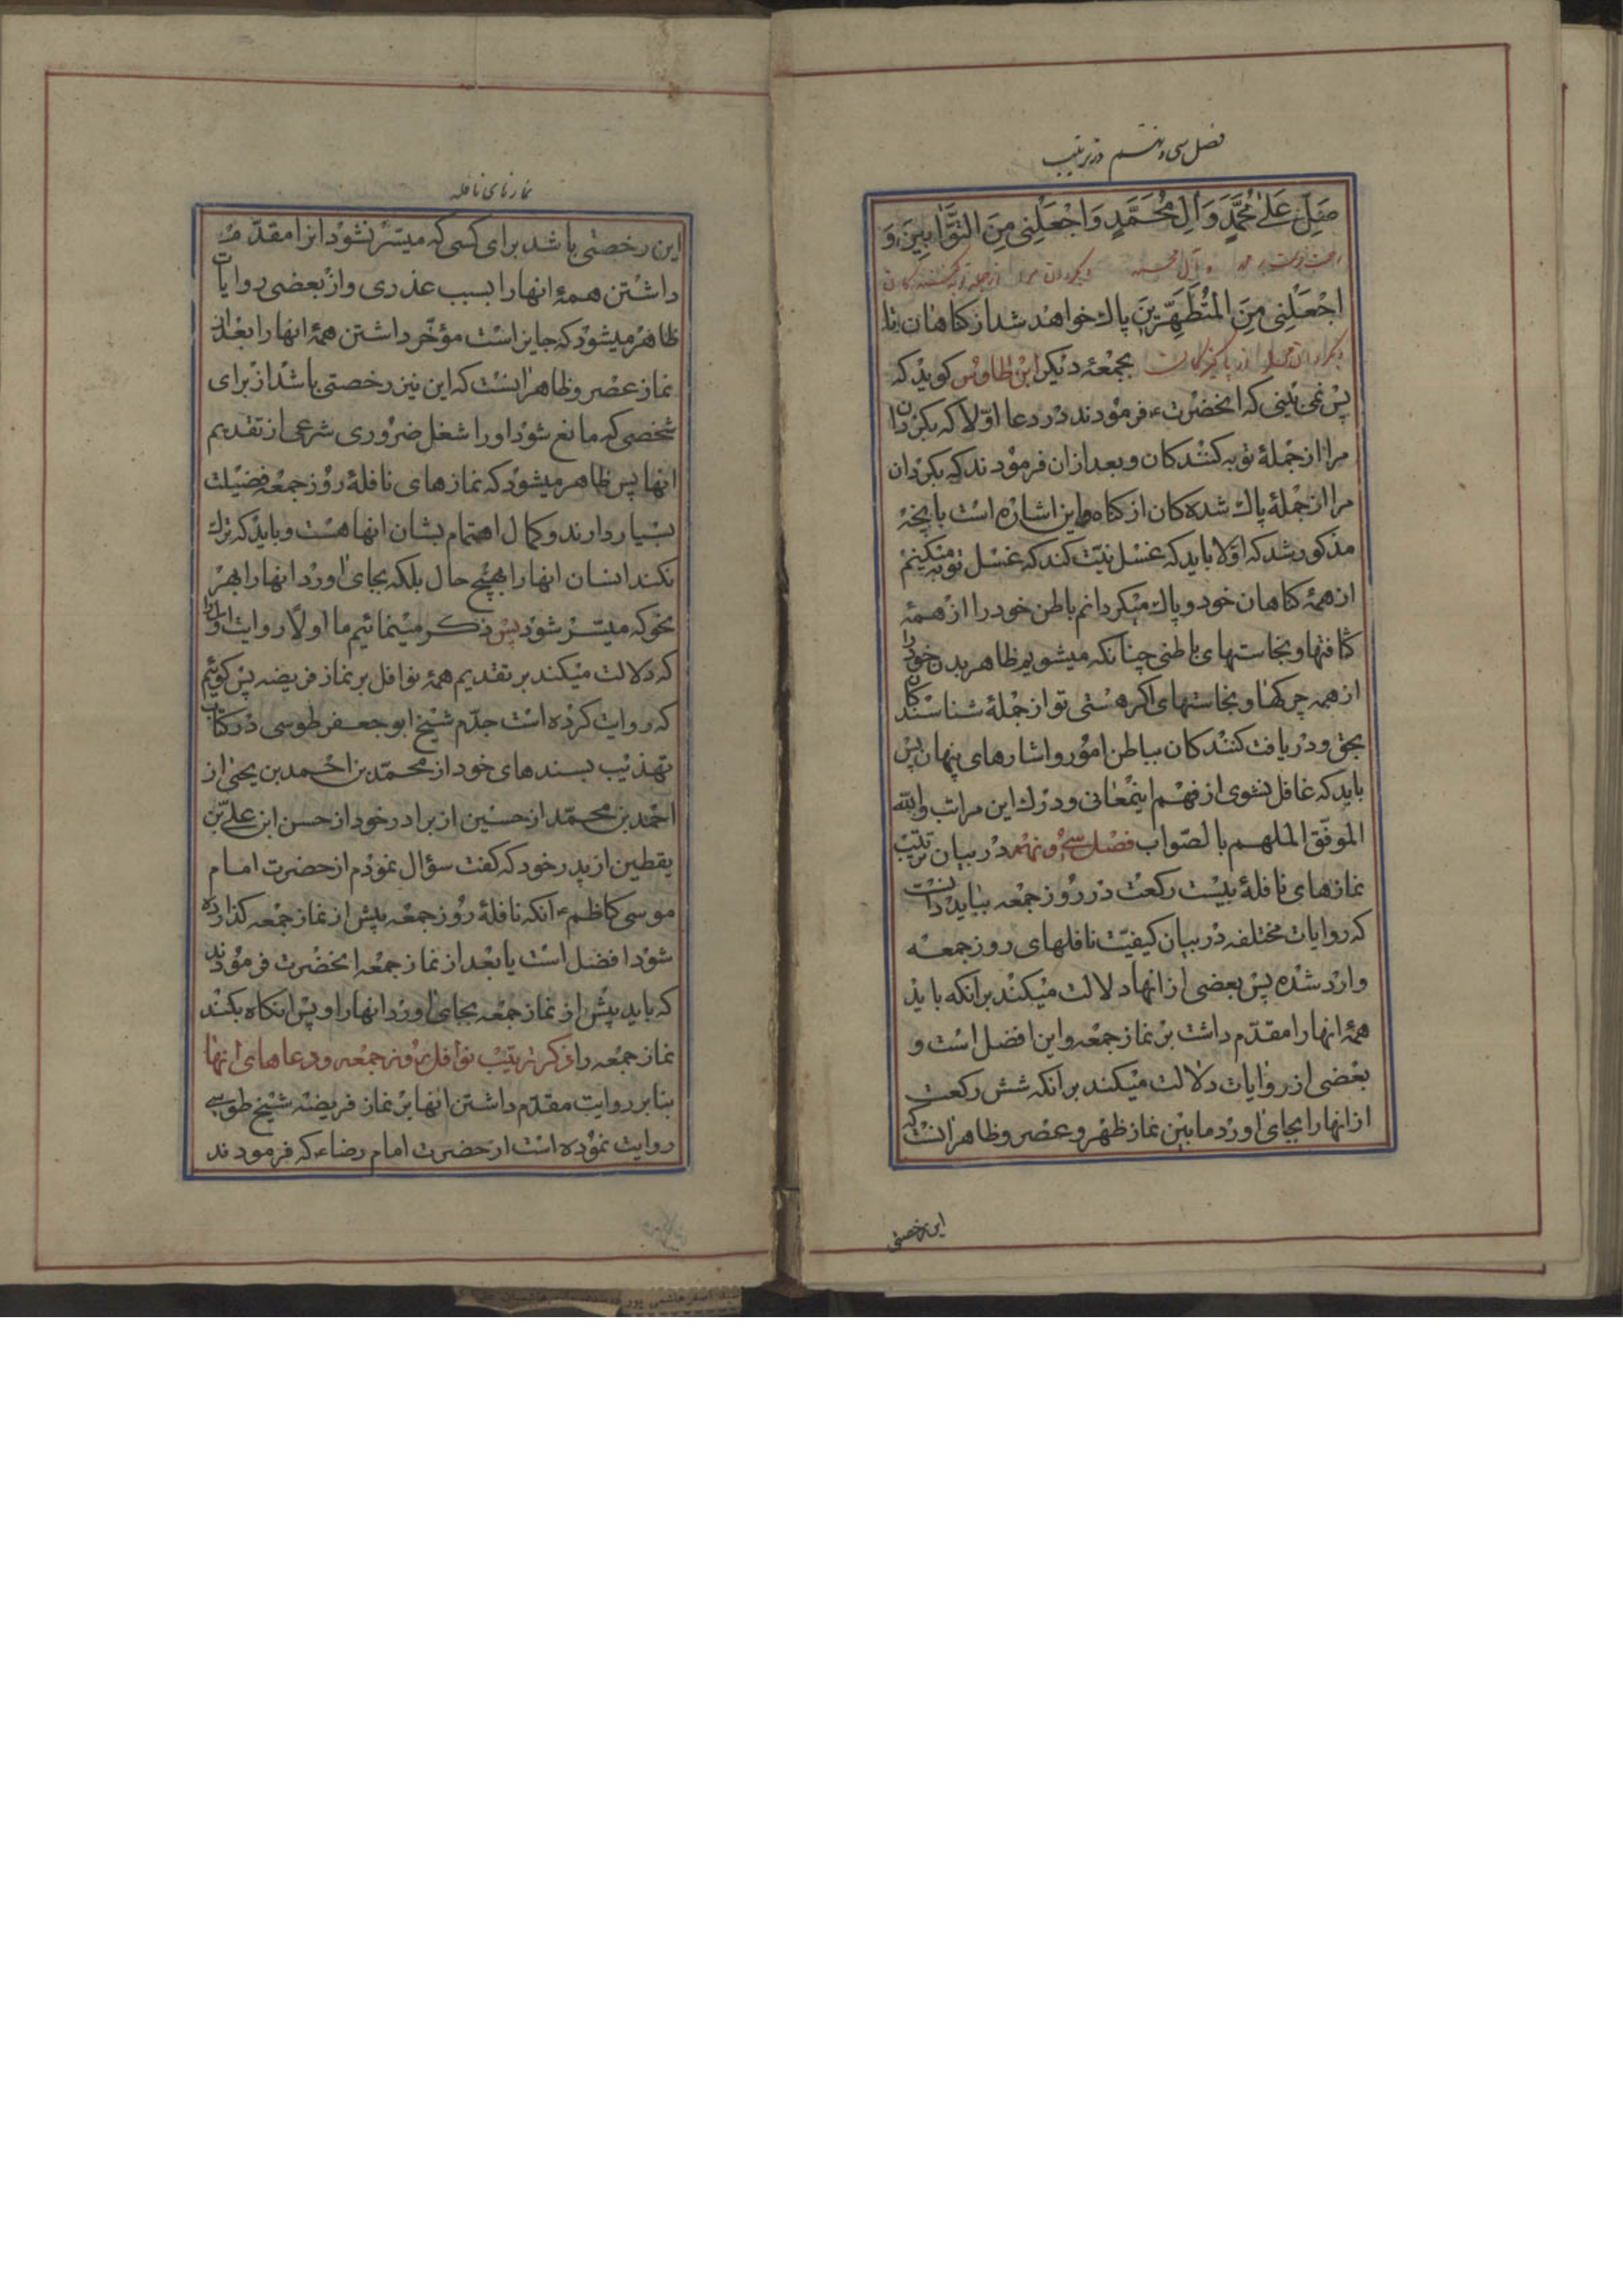 فصل سی و نهم در ترتیب
صَلِّ عَلٰی مُحَمَّدٍ وَ اٰلِ مُحَمَّدٍ وَ اجْعَلْنِی مِنَ التَّوَّابِینَ وَ
رحمت فرست بر محمد و آل محمد و بگردان مرا از جمله توبه کنندکان
اجْعَلْنِی مِنَ الْمُتَطَهِّرِینَ پاک خواهد شد از کناهان تا
و بگردان مرا از پاکیزکان
بجمعهٔ دیکر ابن طاوس کوید که
پس نمی بینی که انحضرت ع فرمودند در دعا اولا که بکردان
مرا از جملهٔ توبه کنندکان و بعد ازان فرمودند که بکردان
مرا از جملهٔ پاک شده کان از کناه و این اشاره است بانچه
مذکور شد که اولا باید که غسل نیت کند که غسل توبه میکنیم
از همهٔ کناهان خود و پاک میکردانم باطن خود را از همهٔ
کثافتها و نجاستهای باطنی چنانکه میشویم ظاهر بدن خود را
از همه چرکها و نجاستهای اکر هستی تو از جملهٔ شناسندکان
بحق و دریافت کنندکان بباطن امور و اشارهای پنهان پس
باید که غافل نشوی از فهم اینمعانی و درک این مراتب والله
الموفق الملهم بالصواب فصل سی و نهم در بیان ترتیب
نمازهای نافلهٔ بیست رکعت در روز جمعه بباید دانست
که روایات مختلفه در بیان کیفیت نافلهای روز جمعه
وارد شده پس بعضی از انها دلالت میکند برانکه باید
همهٔ انها را مقدم داشت بر نماز جمعه و این افضل است و
بعضی از روایات دلالت میکند برانکه شش رکعت
از انها را بجای اورد مابین نماز ظهر و عصر و ظاهر انست که
این رخصتی
نمازهای نافله
این رخصتی باشد برای کسی که میسر نشود انرا مقدم
داشتن همهٔ انها را بسبب عذری و از بعضی روایات
ظاهر میشود که جایز است مؤخر داشتن همهٔ انها را بعد از
نماز عصر و ظاهر اینست که این نیز رخصتی باشد از برای
شخصی که مانع شود او را شغل ضروری شرعی از تقدیم
انها پس ظاهر میشود که نمازهای نافلهٔ روز جمعه فضیلت
بسیار دارند و کمال اهتمام بشان انها هست و باید که ترک
نکند انسان انها را بهیچ حال بلکه بجای اورد انها را بهر
نحو که میسر شود پس ذکر مینمائیم ما اولا روایت اول را
که دلالت میکند بر تقدیم همهٔ نوافل بر نماز فریضه پس کوئیم
که روایت کرده است جدم شیخ ابو جعفر طوسی در کتاب
تهذیب بسندهای خود از محمد بن احمد بن یحیی از
احمد بن محمد از حسین از برادر خود از حسن ابن علی بن
یقطین از پدر خود که کفت سؤال نمودم از حضرت امام
موسی کاظم ع انکه نافلهٔ روز جمعه پیش از نماز جمعه کذارده
شود افضل است یا بعد از نماز جمعه انحضرت فرمودند
که باید پیش از نماز جمعه بجای اورد انها را و پس انکاه بکند
نماز جمعه را ذکر ترتیب نوافل روز جمعه و دعاهای انها
بنابر روایت مقدم داشتن انها بر نماز فریضه شیخ طوسی
روایت نموده است از حضرت امام رضا ع که فرمودند